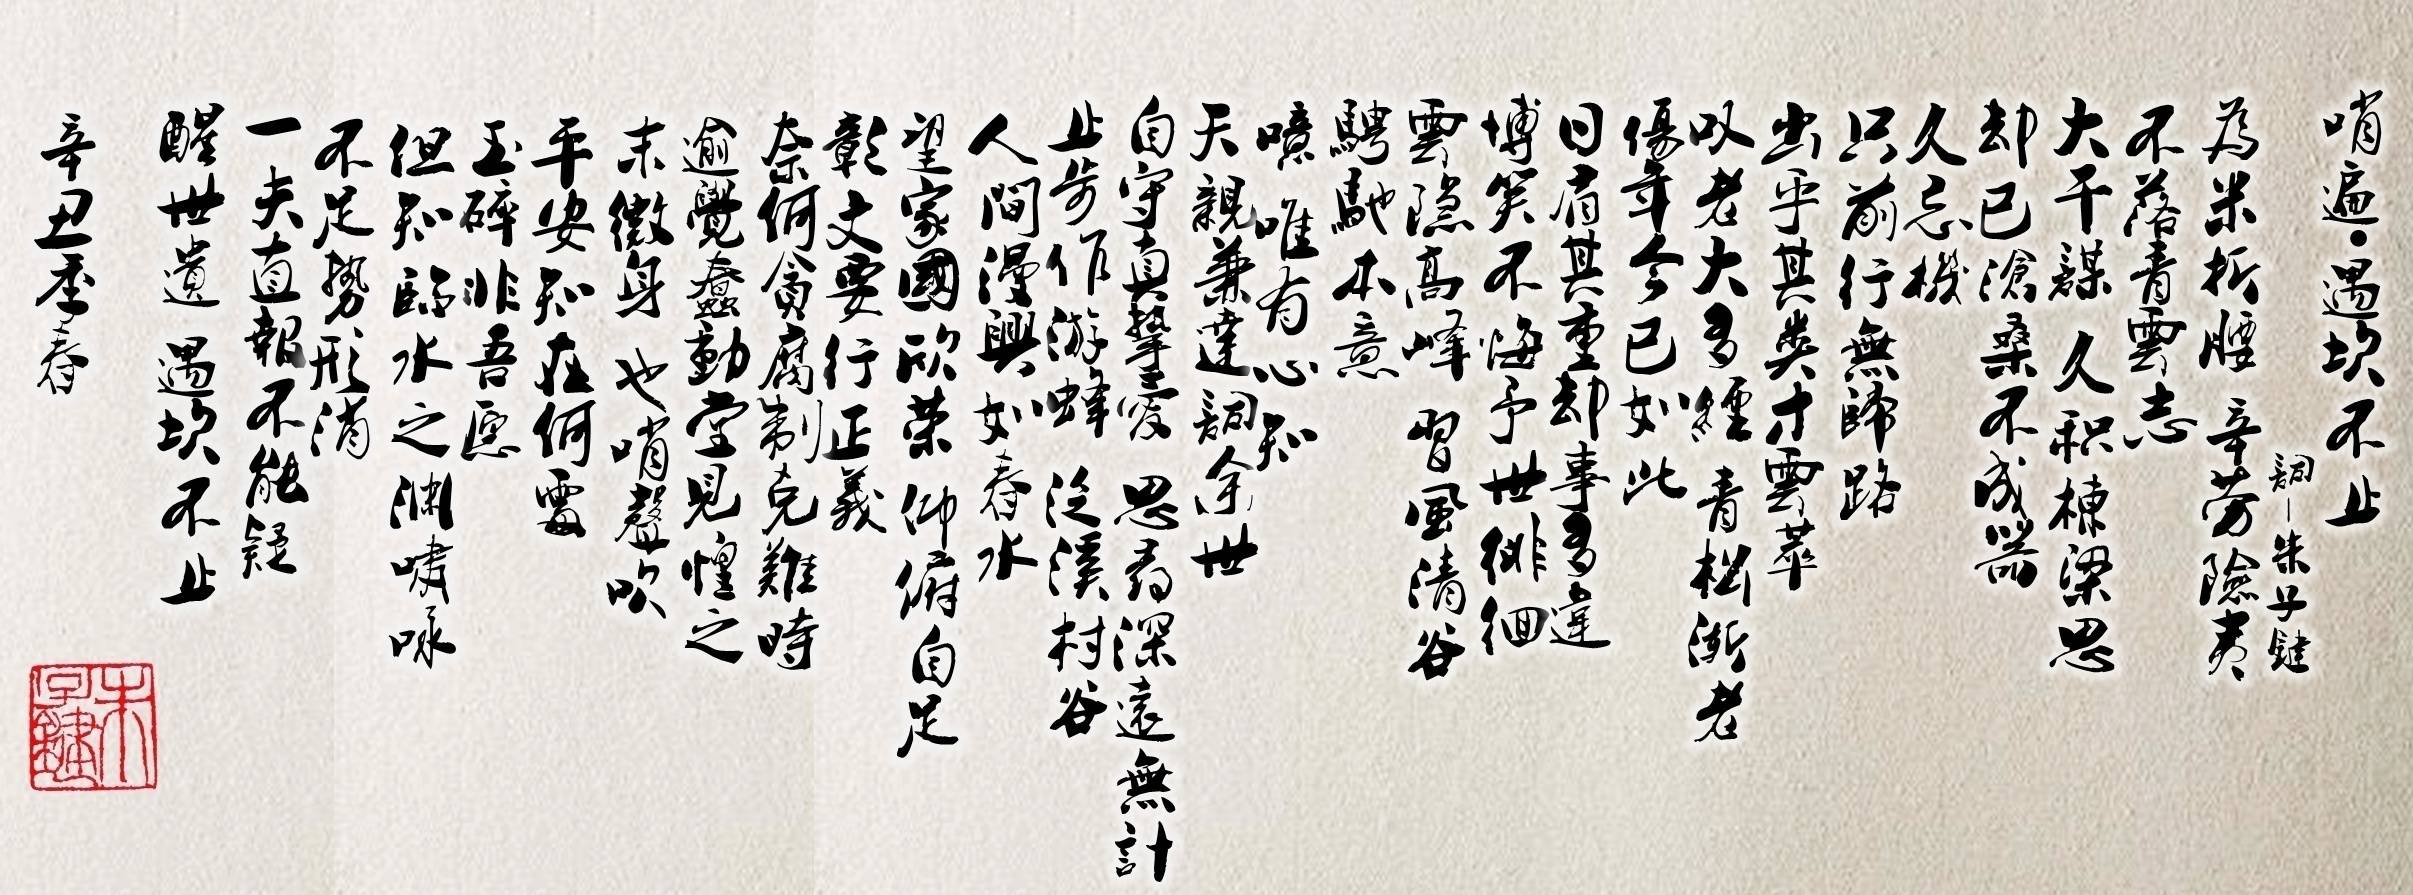 哨遍·遇坎不止
詞—朱子鍵
為米折腰 辛劳險夷
不落青雲志
大干謀 久积棟梁思
却已滄桑不成器
久忘機
只前行無歸路
出乎其类才雲萃
叹老大多經 青松渐老
傷年今已如此
日肩其重却事多違
博笑不悔予世徘徊
雲隐高峰 習風清谷
騁馳本意
噫 唯有心知
天親兼達詞余世
自守真摯愛 思爲深遠無計
止步作游蜂 泛溪村谷
人間漫興如春水
望家國欣荣 仰俯自足
彰文要行正義
奈何貪腐制克難時
逾覺蠢動堂見惶之
末微身 也哨聲吹
平安知在何處
玉碎非吾愿
但知臨水之渊嘯咏
不足勢形消
一夫直報不能疑
醒世遺 遇坎不止
辛丑季春
朱子鍵